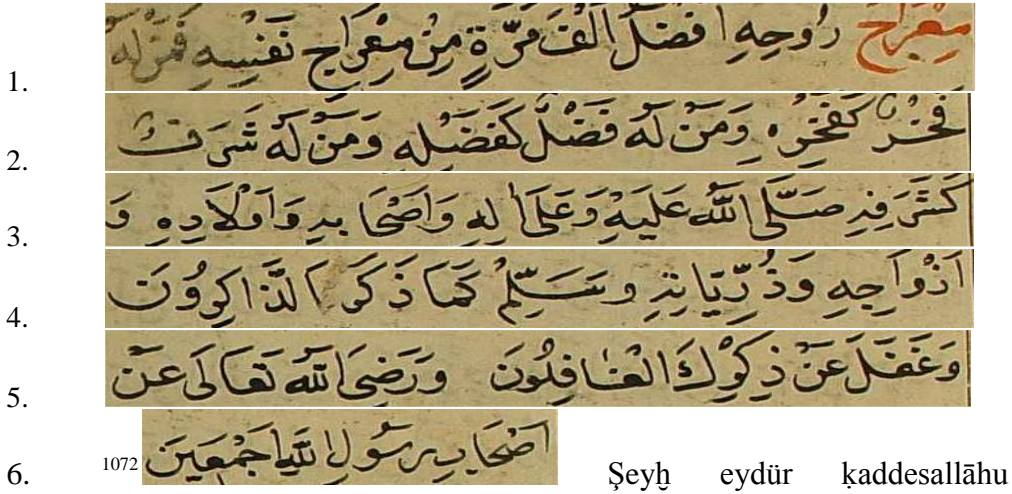 1. مِعْرَاجُ رُوحِهِ اَفْضَلُ اَلْفَ مَرَّةٍ مِنْ مِعْرَاجِ نَفْسِهِ فَمَنْ لَهُ
2. فَخْرٌ كَفَخْرِهِ وَمَنْ لَهُ فَضْلٌ كَفَضْلِهِ وَمَنْ لَهُ شَرَفٌ
3. كَشَرَفِهِ صَلَّى اللّٰهُ عَلَيْهِ وَعَلَى اٰلِهِ وَاَصْحَابِهِ وَاَوْلَادِهِ وَ
4. اَزْوَاجِهِ وَذُرِّيَّاتِهِ وَسَلِّمْ كَمَا ذَكَرَ الذَّاكِرُونَ
5. وَغَفَلَ عَنْ ذِكْرِكَ الْغَافِلُونَ وَرَضِىَ اللّٰهُ تَعَالَى عَنْ
6. اَصْحَابِ رَسُولِ اللّٰهِ اَجْمَعِينَ 1072 Şeyḫ eydür ḳaddesallāhu